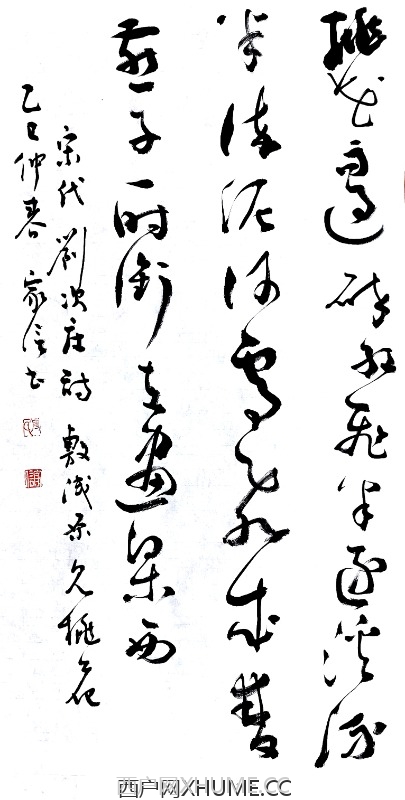 桃花雨過碎紅飛半逐溪流
半染泥何處飛來雙
燕子一時銜在畫梁西
宋代劉次庄詩敷淺原見桃花
乙巳仲春家信书
西户网XHUME.CC